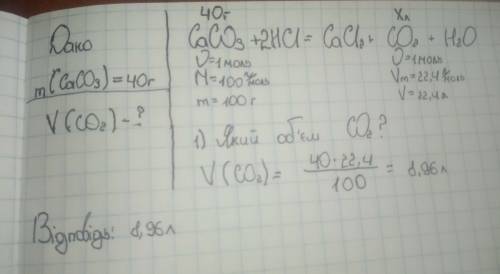 Дано
m(CaCO₃)=40г
V(CO₂)-?
40г Xл
CaCO₃+2HCl=CaCl₂+CO₂+H₂O
ν=1моль ν=1моль
M=100г/моль Vm=22,4л/моль
m=100г V=22,4л
1) Який об'єм CO₂?
V(CO₂)= 40·22,4 / 100 = 8,96л
Відповідь: 8,96л